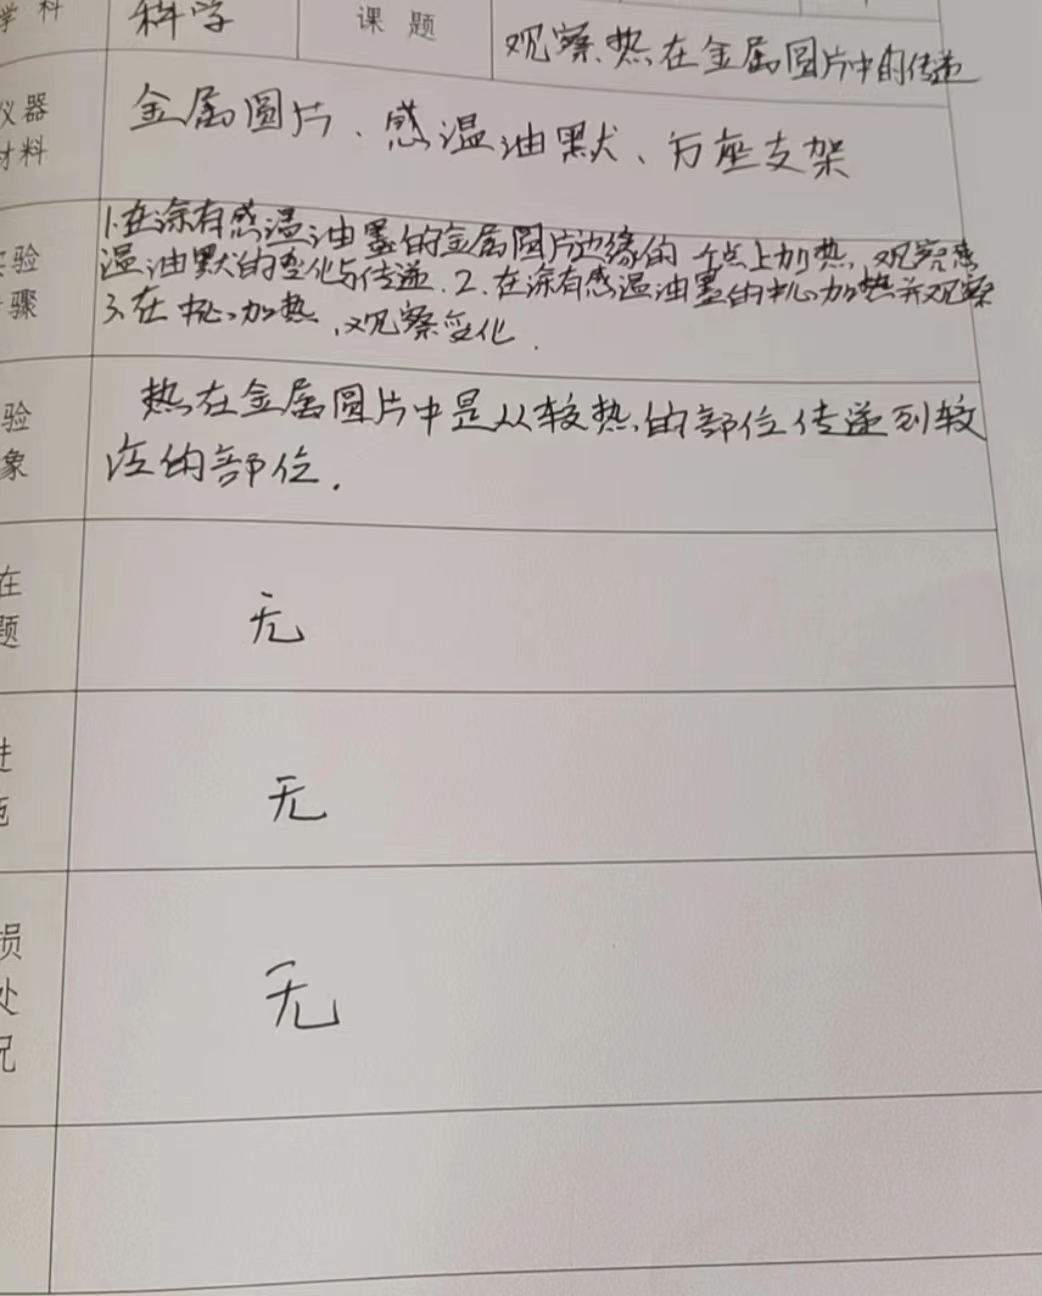 学科 科学 课题 观察热在金属圆片中的传递
仪器
材料
金属圆片、感温油默、方座支架
实验
步骤
1.在涂有感温油墨的金属圆片边缘的一个点上加热,观察感
温油默的变化与传递.2.在涂有感温油墨的中心加热并观察
3.在中心加热,观察变化.
验
象
热在金属圆片中是从较热的部位传递到较
冷的部位.
在
题
无
进
无
损
处
况
无